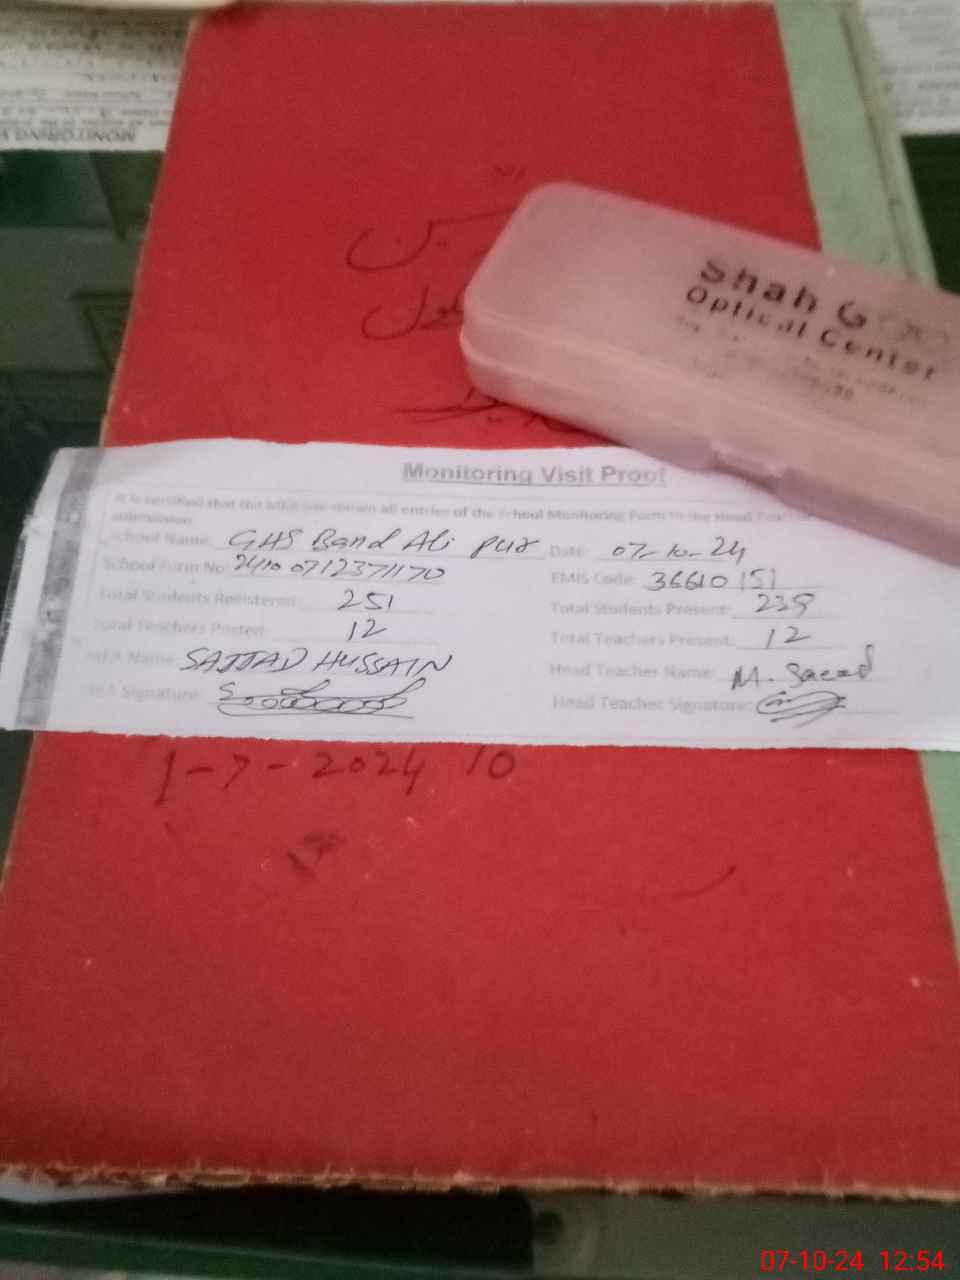 MONITORING V
Shah G
Optical Center
Monitoring Visit Proof
It is certified that the MEA has shown all entries of the School Monitoring Form to the Head Teacher
submission.
School Name: GHS Band Ali pur Date: 07-10-24
School Form No: 2410 0712371170 EMIS Code: 36610151
Total Students Registered: 251 Total Students Present: 239
Total Teachers Posted: 12 Total Teachers Present: 12
MEA Name: SAJJAD HUSSAIN Head Teacher Name: M. Saeed
MEA Signature: Head Teacher Signature:
1-7-2024 10
07-10-24 12:54